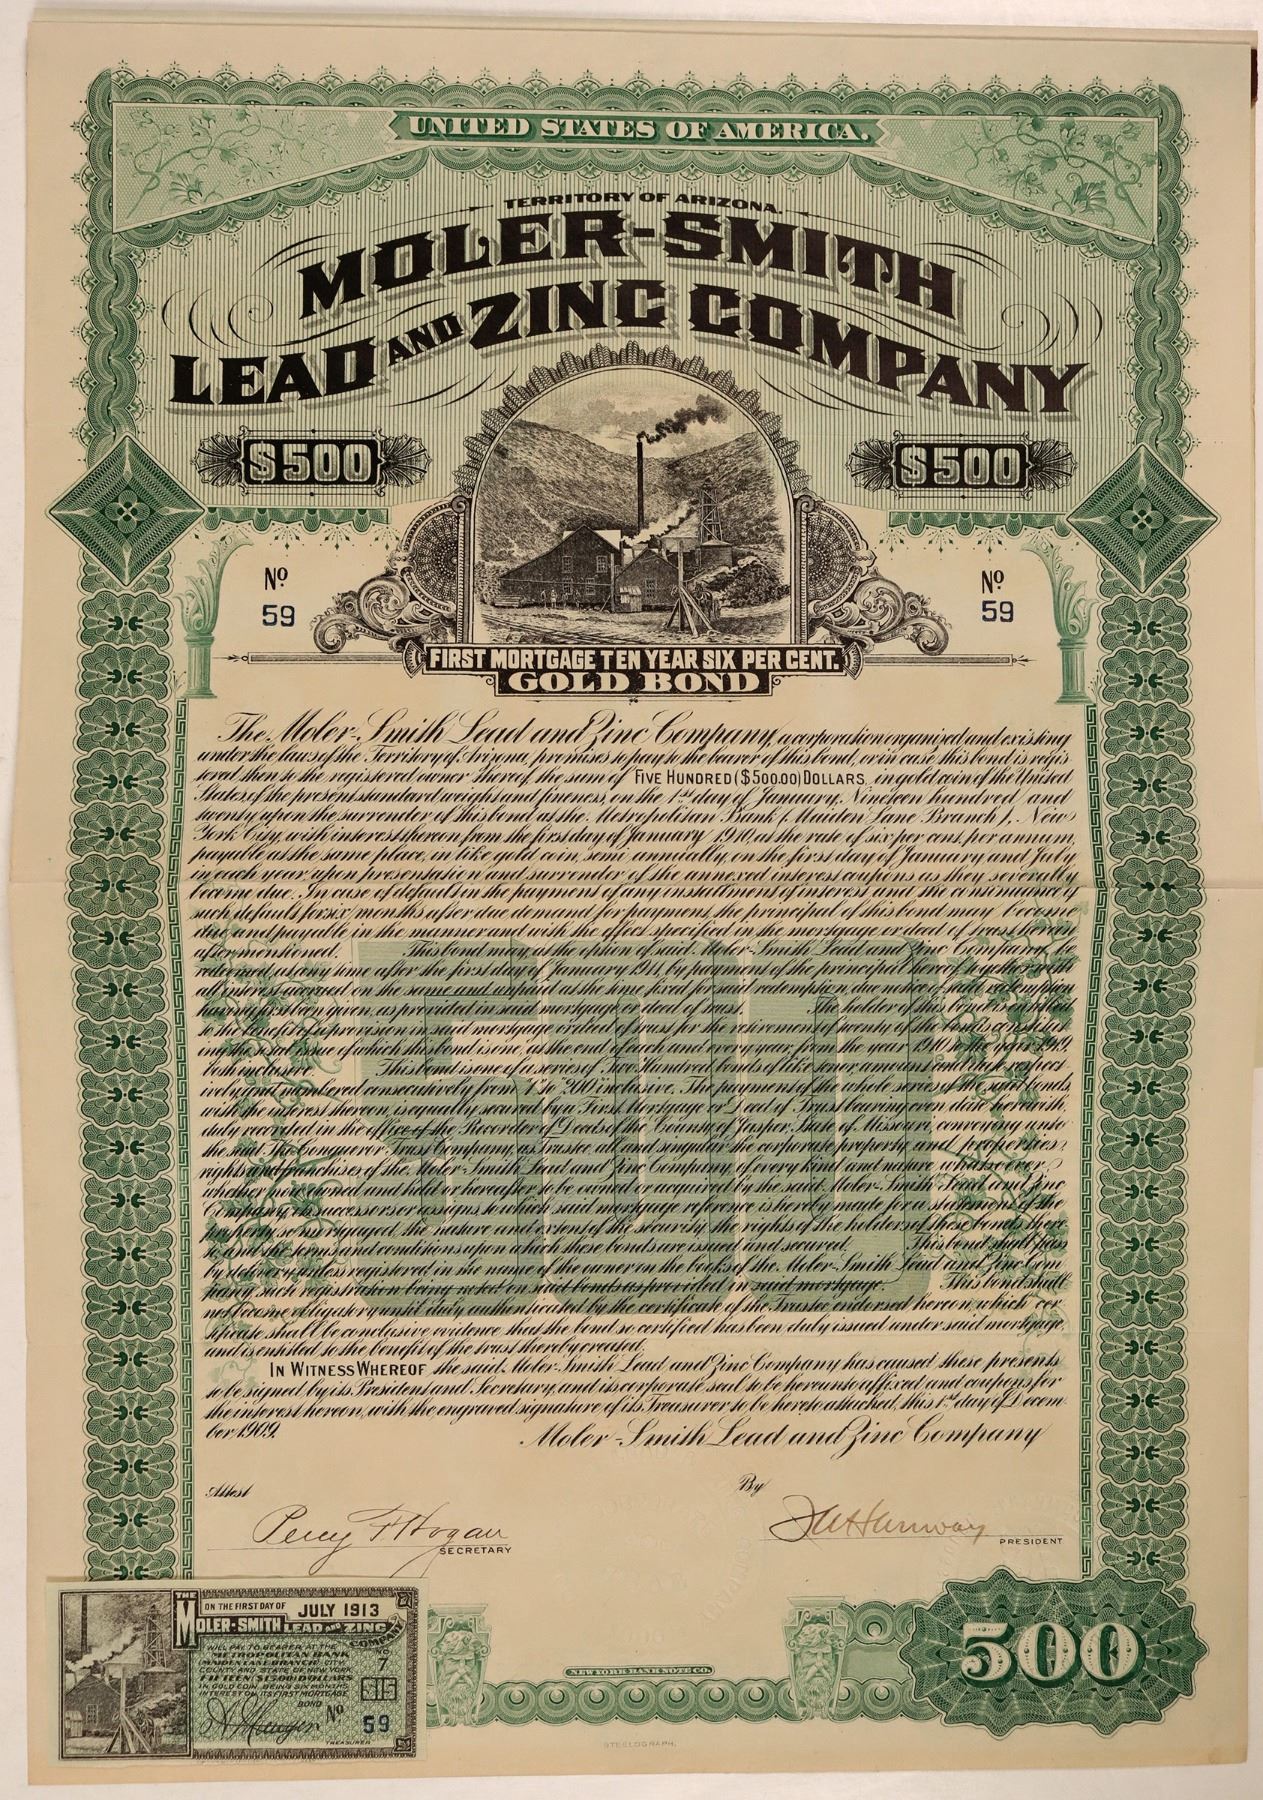 UNITED STATES OF AMERICA.
TERRITORY OF ARIZONA.
MOLER-SMITH
LEAD AND ZINC COMPANY
$500 $500
No. 59 No. 59
FIRST MORTGAGE TEN YEAR SIX PER CENT.
GOLD BOND
The Moler-Smith Lead and Zinc Company, a corporation organized and existing
under the laws of the Territory of Arizona, promises to pay to the bearer of this bond, or in case this bond is regis
tered then to the registered owner thereof, the sum of FIVE HUNDRED ($500.00) DOLLARS, in gold coin of the United
States, of the present standard weight and fineness, on the 1st day of January, Nineteen hundred and
twenty upon the surrender of this bond at the Metropolitan Bank (Maiden Lane Branch), New
York City, with interest thereon from the first day of January 1910, at the rate of six per cent, per annum,
payable at the same place, in like gold coin, semi annually, on the first day of January and July
in each year, upon presentation and surrender of the annexed interest coupons as they severally
become due. In case of default in the payment of any installment of interest and the continuance of
such default for six months after due demand for payment, the principal of this bond may become
due and payable in the manner and with the effect specified in the mortgage or deed of trust herein
after mentioned. This bond may, at the option of said Moler-Smith Lead and Zinc Company, be
redeemed, at any time after the first day of January 1911, by payment of the principal hereof together with
all interest accrued on the same and unpaid at the time fixed for said redemption, due notice of said redemption
having first been given, as provided in said mortgage or deed of trust. The holder of this bond is entitled
to the benefit of a provision in said mortgage or deed of trust for the retirement of twenty of the bonds constitut
ing the total issue of which this bond is one, at the end of each and every year, from the year 1910 to the year 1919,
both inclusive. This bond is one of a series of Two Hundred bonds of like tenor, amount and date respect
ively and numbered consecutively from "1" to "200" inclusive. The payment of the whole series of the said bonds,
with the interest thereon, is equally secured by a First Mortgage or Deed of Trust bearing even date herewith,
duly recorded in the office of the Recorder of Deeds of the County of Jasper, State of Missouri, conveying unto
the said The Conqueror Trust Company, as Trustee, all and singular the corporate property and properties,
rights and franchises of the Moler-Smith Lead and Zinc Company, of every kind and nature, whatsoever,
whether now owned and held or hereafter to be owned or acquired by the said Moler-Smith Lead and Zinc
Company, its successors or assigns, to which said mortgage reference is hereby made for a statement of the
property so mortgaged, the nature and extent of the security, the rights of the holders of these bonds there
to, and the terms and conditions upon which these bonds are issued and secured. This bond shall pass
by delivery unless registered in the name of the owner on the books of the Moler-Smith Lead and Zinc Com
pany, such registration being noted on said bonds as provided in said mortgage. This bond shall
not become obligatory until duly authenticated by the certificate of the Trustee endorsed hereon, which cer
tificate shall be conclusive evidence that the bond so certified has been duly issued under said mortgage
and is entitled to the benefit of the trust thereby created.
IN WITNESS WHEREOF the said Moler-Smith Lead and Zinc Company has caused these presents
to be signed by its President and Secretary, and its corporate seal to be hereunto affixed and coupons for
the interest hereon, with the engraved signature of its Treasurer to be hereto attached, this 1st day of Decem
ber 1909.
Moler-Smith Lead and Zinc Company
Attest By
Percy F. Hogan
SECRETARY
PRESIDENT
ON THE FIRST DAY OF JULY 1913
THE MOLER-SMITH LEAD AND ZINC COMPANY
WILL PAY TO BEARER AT THE
METROPOLITAN BANK
MAIDEN LANE BRANCH, CITY,
COUNTY AND STATE OF NEW YORK
FIFTEEN $15.00 DOLLARS
IN GOLD COIN, BEING SIX MONTHS
INTEREST ON ITS FIRST MORTGAGE
BOND No. 59
No 7
$15
TREASURER
NEW YORK BANK NOTE CO.
500
STEELOGRAPH.